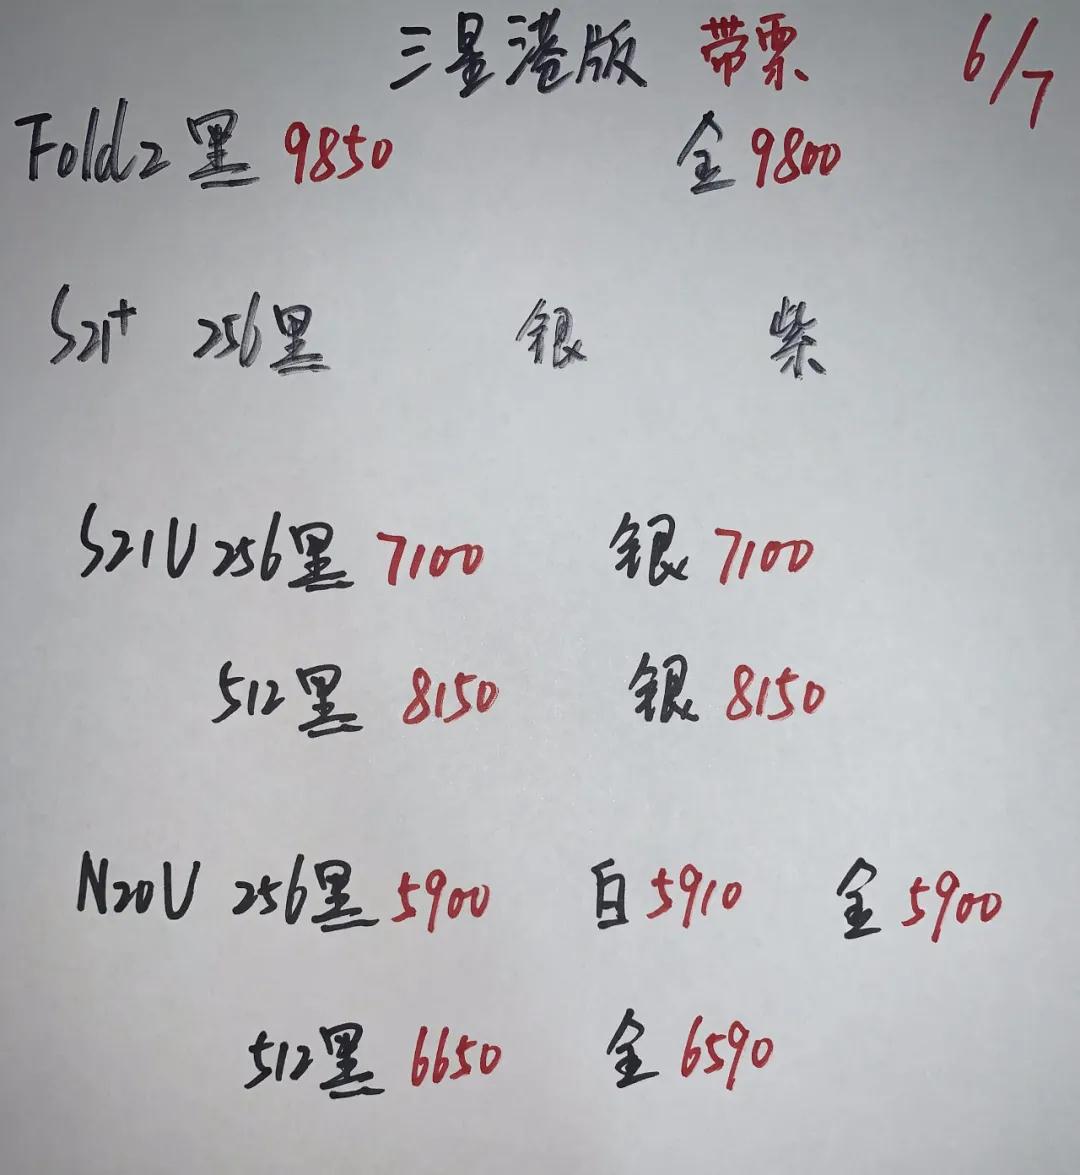 三星港版 带票 6/7
Fold2 黑 9850 金 9800
S21+ 256黑 银 紫
S21U 256黑 7100 银 7100
512黑 8150 银 8150
N20U 256黑 5900 白 5910 金 5900
512黑 6650 金 6590